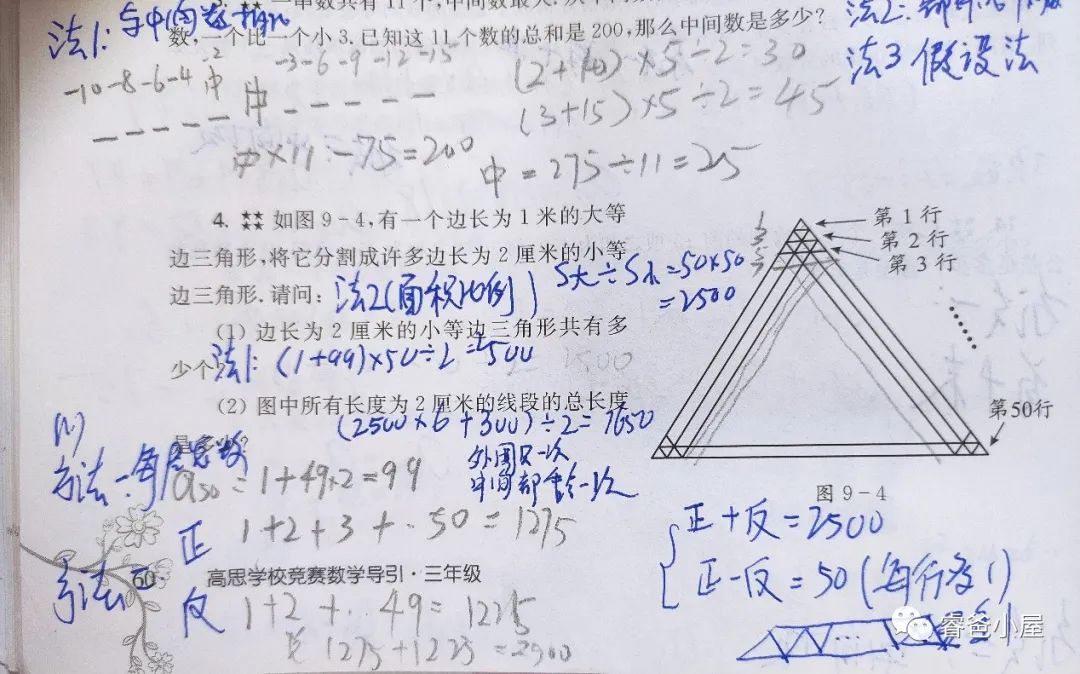 一串数共有11个,中间数最大.
法1:与中间数相比
数,一个比一个小3.已知这11个数的总和是200,那么中间数是多少?
法2:
法3 假设法
-10-8-6-4 -2 中
-3-6-9-12-15
中
(2+10)×5÷2=30
(3+15)×5÷2=45
中×11-75=200
中=275÷11=25
4. ★★★★ 如图9-4,有一个边长为1米的大等
边三角形,将它分割成许多边长为2厘米的小等
边三角形.请问:
法2(面积比例)
S大÷S小=50×50
=2500
(1) 边长为2厘米的小等边三角形共有多
少个?
法1: (1+99)×50÷2=2500
2500
(2) 图中所有长度为2厘米的线段的总长度
是多少?
(2500×6+300)÷2=7650
外围只一次
中间都重合一次
第1行
第2行
第3行
第50行
图9-4
(1)
方法一:
a50=1+49×2=99
方法二
正
1+2+3+..50=1275
反
1+2+..49=1225
1275+1225=2500
正+反=2500
正-反=50(每行多1)
60 高思学校竞赛数学导引·三年级
睿爸小屋